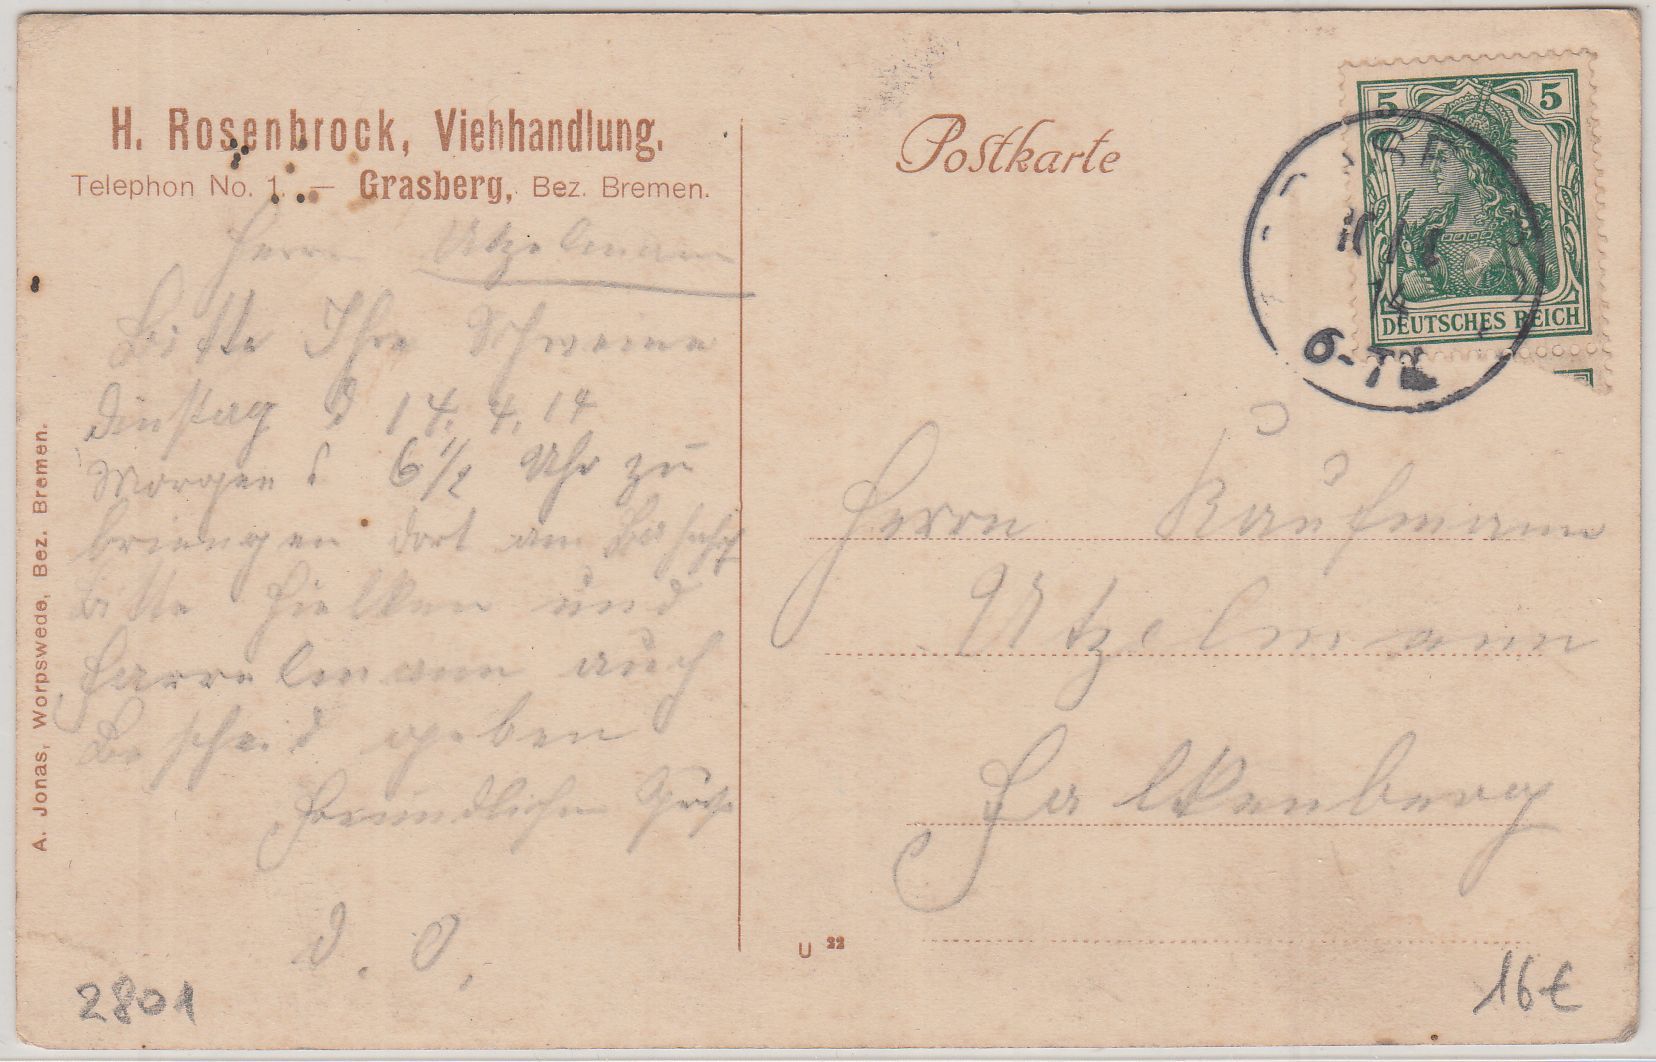 H. Rosenbrock, Viehhandlung.
Telephon No. 1. — Grasberg, Bez. Bremen.
Herrn Utzelmann
Bitte Ihre Schweine
Dinstag d 14. 4. 14
Morgens 6 1/2 Uhr zu
bringen dort am
Bitte und
auch
Bescheid geben
Freundlichen Gruß
D. O.
2801
A. Jonas, Worpswede, Bez. Bremen.
Postkarte
5 5
DEUTSCHES REICH
14
6-7
Herrn Kaufmann
Utzelmann
Falkenberg
U 22
16€